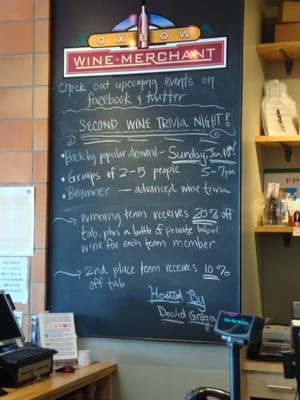 OXBOW
WINE·MERCHANT
Check out upcoming events on
facebook & twitter
SECOND WINE TRIVIA NIGHT!
• Back by popular demand - Sunday, Jan 10th
• Groups of 2-5 people 5-7pm
• Beginner — advanced wine trivia
→ winning team receives 20% off
tab, plus a bottle of private label
wine for each team member
→ 2nd place team receives 10%
off tab
Hosted By
David Gregg